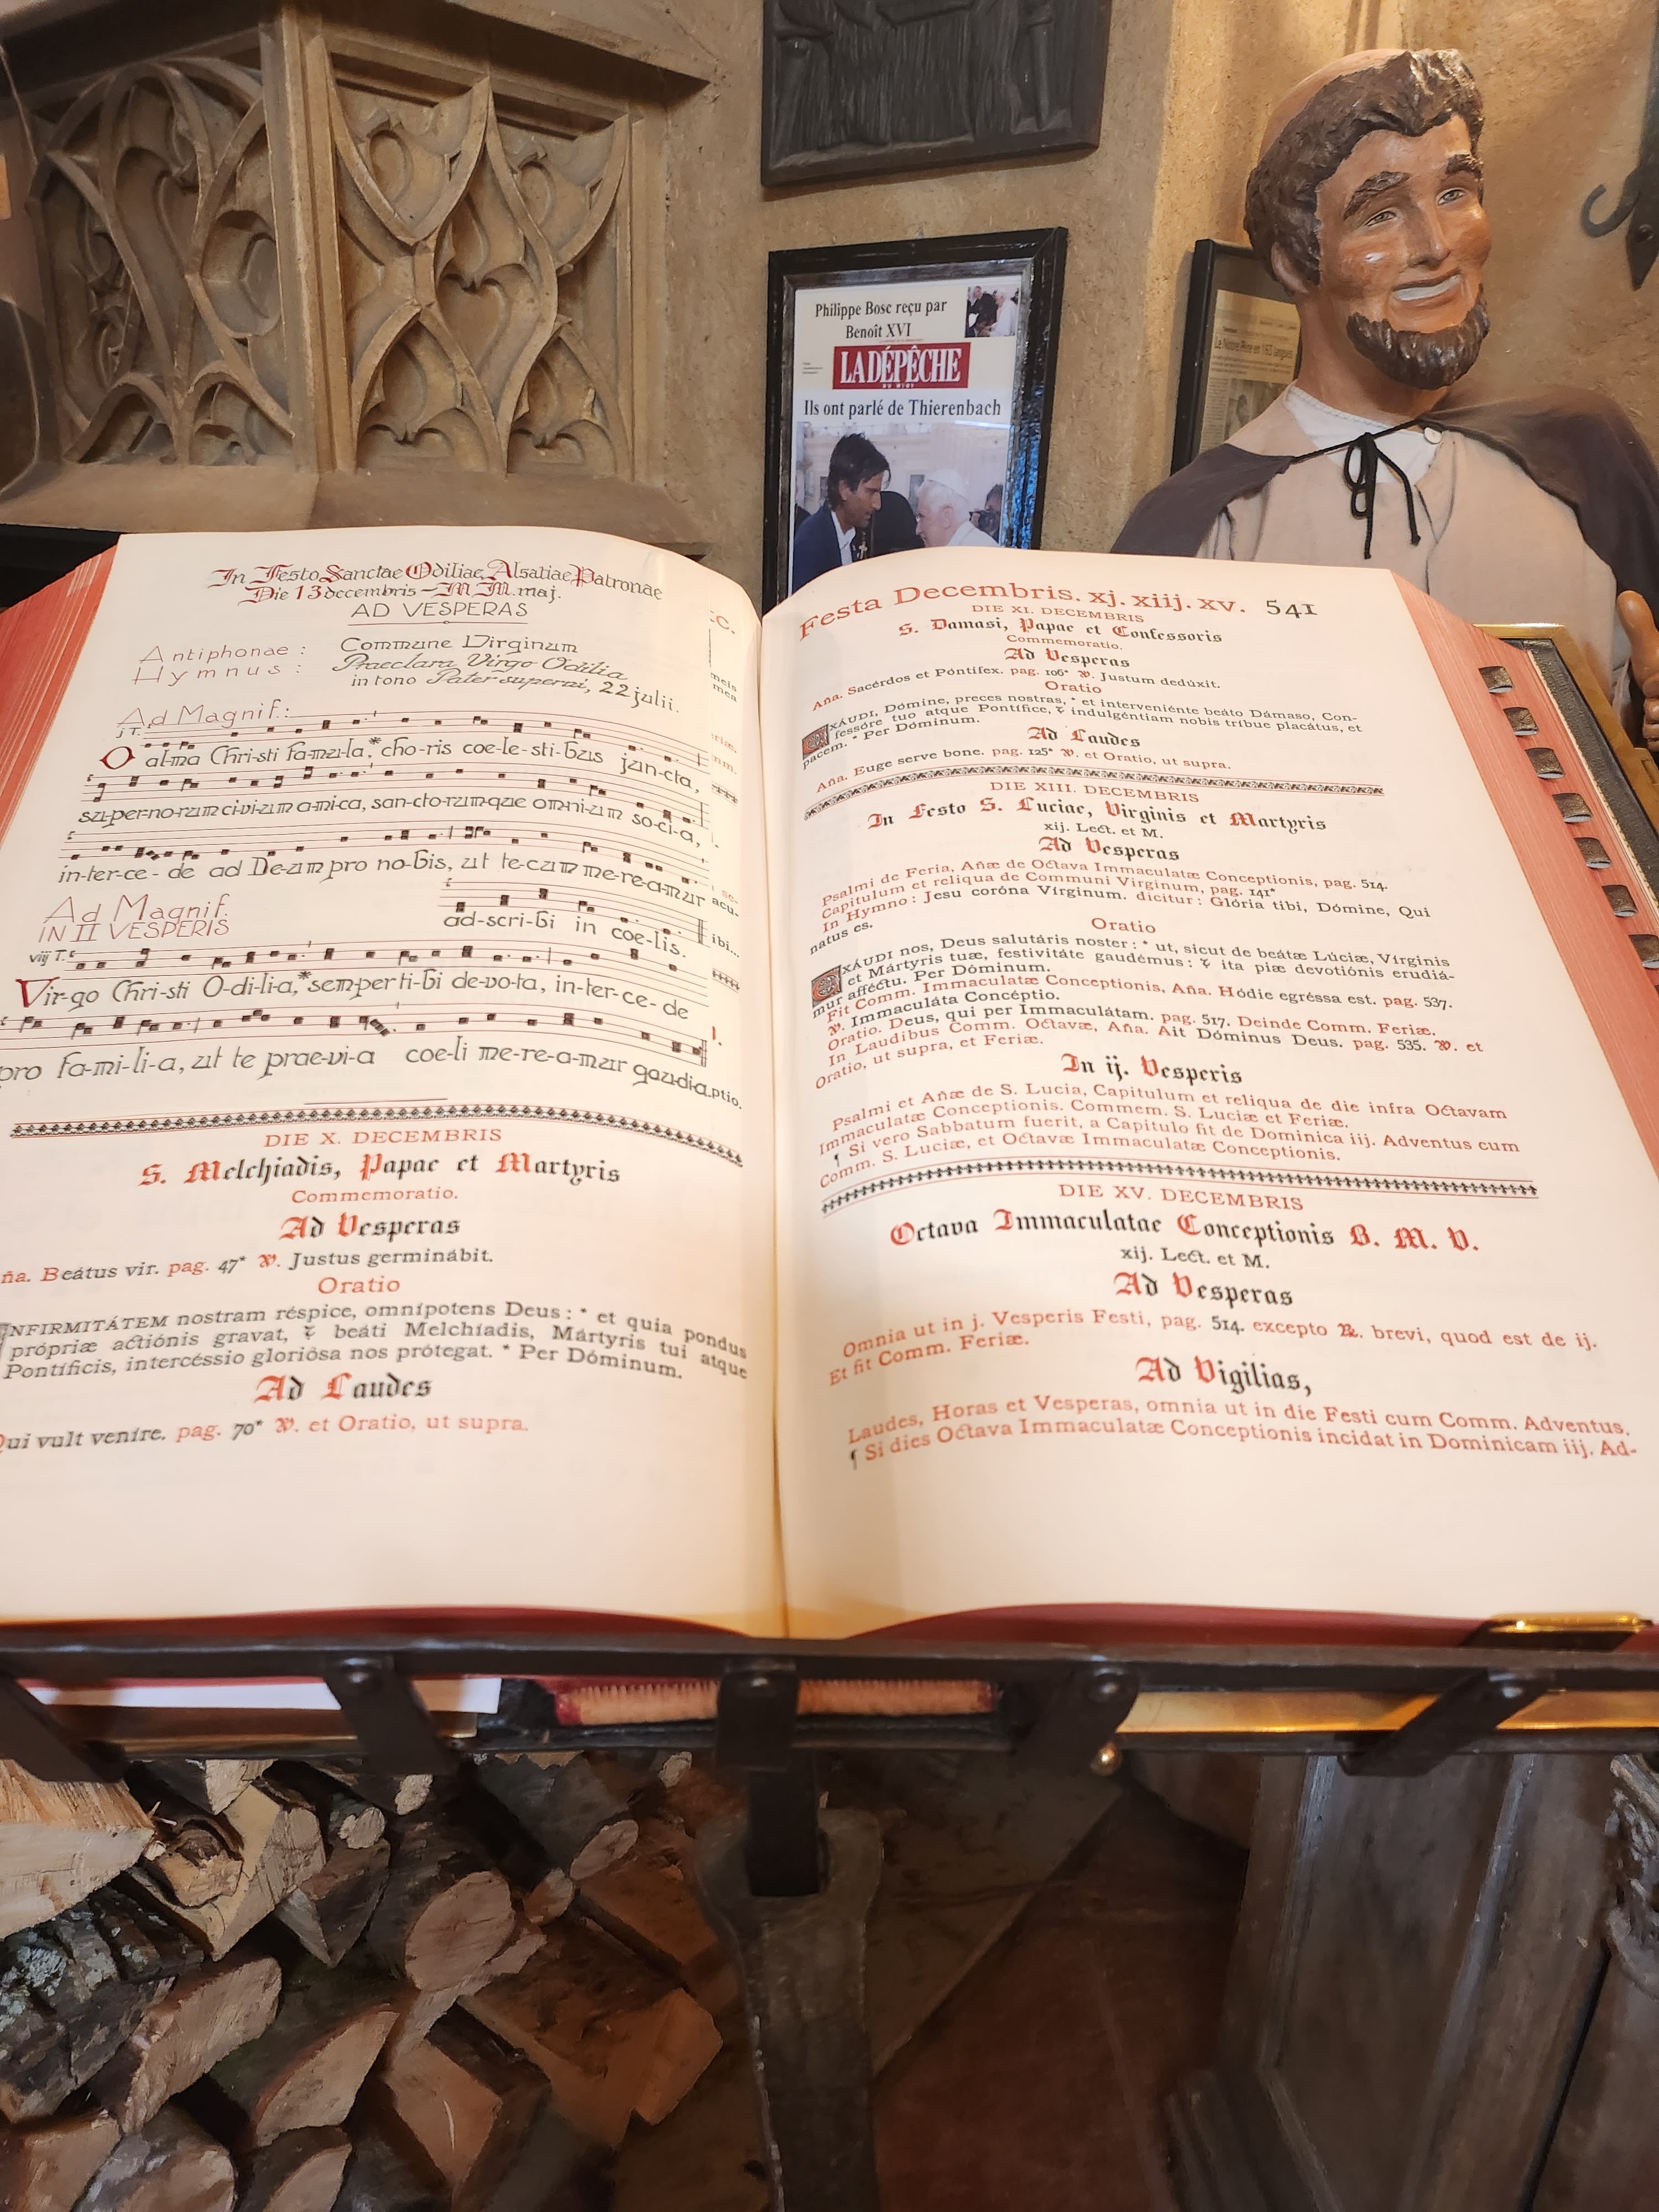 Philippe Bosc reçu par
Benoît XVI
LA DÉPÊCHE
DU MIDI
Ils ont parlé de Thierenbach
Le Notre Père en 163 langues
In Festo Sanctae Odiliae, Alsatiae Patronae
Die 13 decembris – M. M. maj.
AD VESPERAS
Antiphonae : Commune Virginum
Hymnus : Praeclara Virgo Odilia
in tono Pater superni, 22 julii.
Ad Magnif.:
j T.
O alma Chri-sti fa-mu-la,* cho-ris coe-le-sti-bus jun-cta,
su-per-no-rum ci-vi-um a-mi-ca, san-cto-rum-que om-ni-um so-ci-a,
in-ter-ce-de ad De-um pro no-bis, ut te-cum me-re-a-mur
ad-scri-bi in coe-lis.
Ad Magnif.
IN II VESPERIS
viij T.
Vir-go Chri-sti O-di-li-a,* sem-per ti-bi de-vo-ta, in-ter-ce-de
pro fa-mi-li-a, ut te prae-vi-a coe-li me-re-a-mur gau-di-a.
ptio.
DIE X. DECEMBRIS
S. Melchiadis, Papae et Martyris
Commemoratio.
Ad Vesperas
ña. Beátus vir. pag. 47* ℣. Justus germinábit.
Oratio
INFIRMITÁTEM nostram réspice, omnípotens Deus : * et quia pondus
própriæ actiónis gravat, ⁊ beáti Melchíadis, Mártyris tui atque
Pontíficis, intercéssio gloriósa nos prótegat. * Per Dóminum.
Ad Laudes
Qui vult venire. pag. 70* ℣. et Oratio, ut supra.
Festa Decembris. xj. xiij. xv. 541
DIE XI. DECEMBRIS
S. Damasi, Papae et Confessoris
Commemoratio.
Ad Vesperas
Aña. Sacérdos et Póntifex. pag. 106* ℣. Justum dedúxit.
Oratio
EXÁUDI, Dómine, preces nostras, * et interveniénte beáto Dámaso, Con-
fessóre tuo atque Pontífice, ⁊ indulgéntiam nobis tríbue placátus, et
pacem. * Per Dóminum.
Ad Laudes
Aña. Euge serve bone. pag. 125* ℣. et Oratio, ut supra.
DIE XIII. DECEMBRIS
In Festo S. Luciae, Virginis et Martyris
xij. Lect. et M.
Ad Vesperas
Psalmi de Feria, Añæ de Octava Immaculatæ Conceptionis, pag. 514.
Capitulum et reliqua de Communi Virginum, pag. 141*
In Hymno : Jesu coróna Vírginum. dicitur : Glória tibi, Dómine, Qui
natus es.
Oratio
EXÁUDI nos, Deus salutáris noster : * ut, sicut de beátæ Lúciæ, Vírginis
et Mártyris tuæ, festivitáte gaudémus : ⁊ ita piæ devotiónis erudiá-
mur afféctu. Per Dóminum.
Fit Comm. Immaculatæ Conceptionis, Aña. Hódie egréssa est. pag. 537.
℣. Immaculáta Concéptio.
Oratio. Deus, qui per Immaculátam. pag. 517. Deinde Comm. Feriæ.
In Laudibus Comm. Octavæ, Aña. Ait Dóminus Deus. pag. 535. ℣. et
Oratio, ut supra, et Feriæ.
In ij. Vesperis
Psalmi et Añæ de S. Lucia, Capitulum et reliqua de die infra Octavam
Immaculatæ Conceptionis. Commem. S. Luciæ et Feriæ.
¶ Si vero Sabbatum fuerit, a Capitulo fit de Dominica iij. Adventus cum
Comm. S. Luciæ, et Octavæ Immaculatæ Conceptionis.
DIE XV. DECEMBRIS
Octava Immaculatae Conceptionis B. M. V.
xij. Lect. et M.
Ad Vesperas
Omnia ut in j. Vesperis Festi, pag. 514. excepto ℟. brevi, quod est de ij.
Et fit Comm. Feriæ.
Ad Vigilias,
Laudes, Horas et Vesperas, omnia ut in die Festi cum Comm. Adventus.
¶ Si dies Octava Immaculatæ Conceptionis incidat in Dominicam iij. Ad-